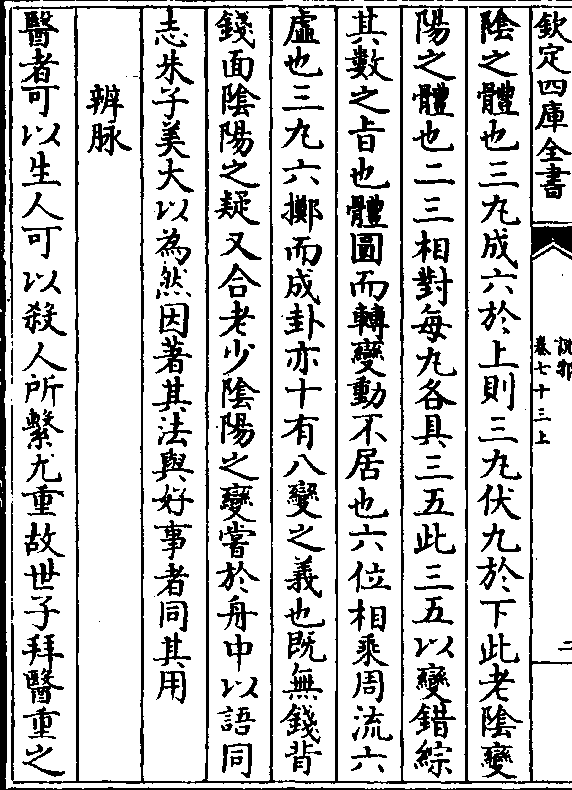 欽定四庫全書
說郛
卷七十三上
二
陰之體也三九成六於上則三九伏九於下此老陰變
陽之體也二三相對每九各具三五此三五以變錯綜
其數之㫖也體圓而轉變動不居也六位相乘周流六
虛也三九六擲而成卦亦十有八變之義也既無錢背
錢面陰陽之疑又合老少陰陽之變嘗於舟中以語同
志朱子美大以為然因著其法與好事者同其用
辨脉
醫者可以生人可以殺人所繫尤重故世子拜醫重之